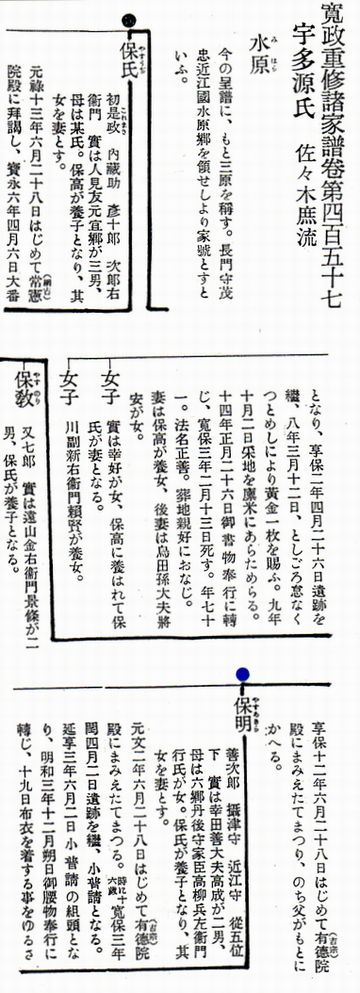 寛政重修諸家譜卷第四百五十七
宇多源氏 佐々木庶流
水原
みはら
今の呈譜に、もと三原を稱す。長門守茂
忠近江國水原郷を領せしより家號とすと
いふ。
保氏
やすうぢ
初是政 内藏助 彦十郎 次郎右
これまさ
衞門 實は人見友元宜郷が三男、
母は某氏。保高が養子となり、其
女を妻とす。
元祿十三年六月二十八日はじめて常憲
(綱吉)
院殿に拜謁し、寶永六年四月六日大番
となり、享保二年四月二十六日遺跡を
繼、八年三月十二日、としごろ怠なく
つとめしにより黄金一枚を賜ふ。九年
十月二日采地を廩米にあらためらる。
十四年正月二十六日御書物奉行に轉
じ、寬保三年二月十三日死す。年七十
一。法名正善。葬地親好におなじ。
妻は保高が養女、後妻は烏田孫大夫將
安が女。
女子
實は幸好が女、保高に養はれて保
氏が妻となる。
女子
川副新右衞門賴賢が養女。
保敎
やすのり
又七郎 實は遠山金右衞門景條が二
男、保氏が養子となる。
享保十二年六月二十八日はじめて有德院
(吉宗)
殿にまみえたてまつり、のち父がもとに
かへる。
保明
やすあきら
善次郎 攝津守 近江守 從五位
下 實は幸田善大夫高成が二男、
母は六郷丹後守家臣高柳兵左衞門
行氏が女。保氏が養子となり、其
女を妻とす。
元文二年六月二十八日はじめて有德院
(吉宗)
殿にまみえたてまつる。時に十六歲 寬保三年
閏四月二日遺跡を繼、小普請となる。
延享三年六月二日小普請の組頭とな
り、明和三年十二月朔日御腰物奉行に
轉じ、十九日布衣を着する事をゆるさ